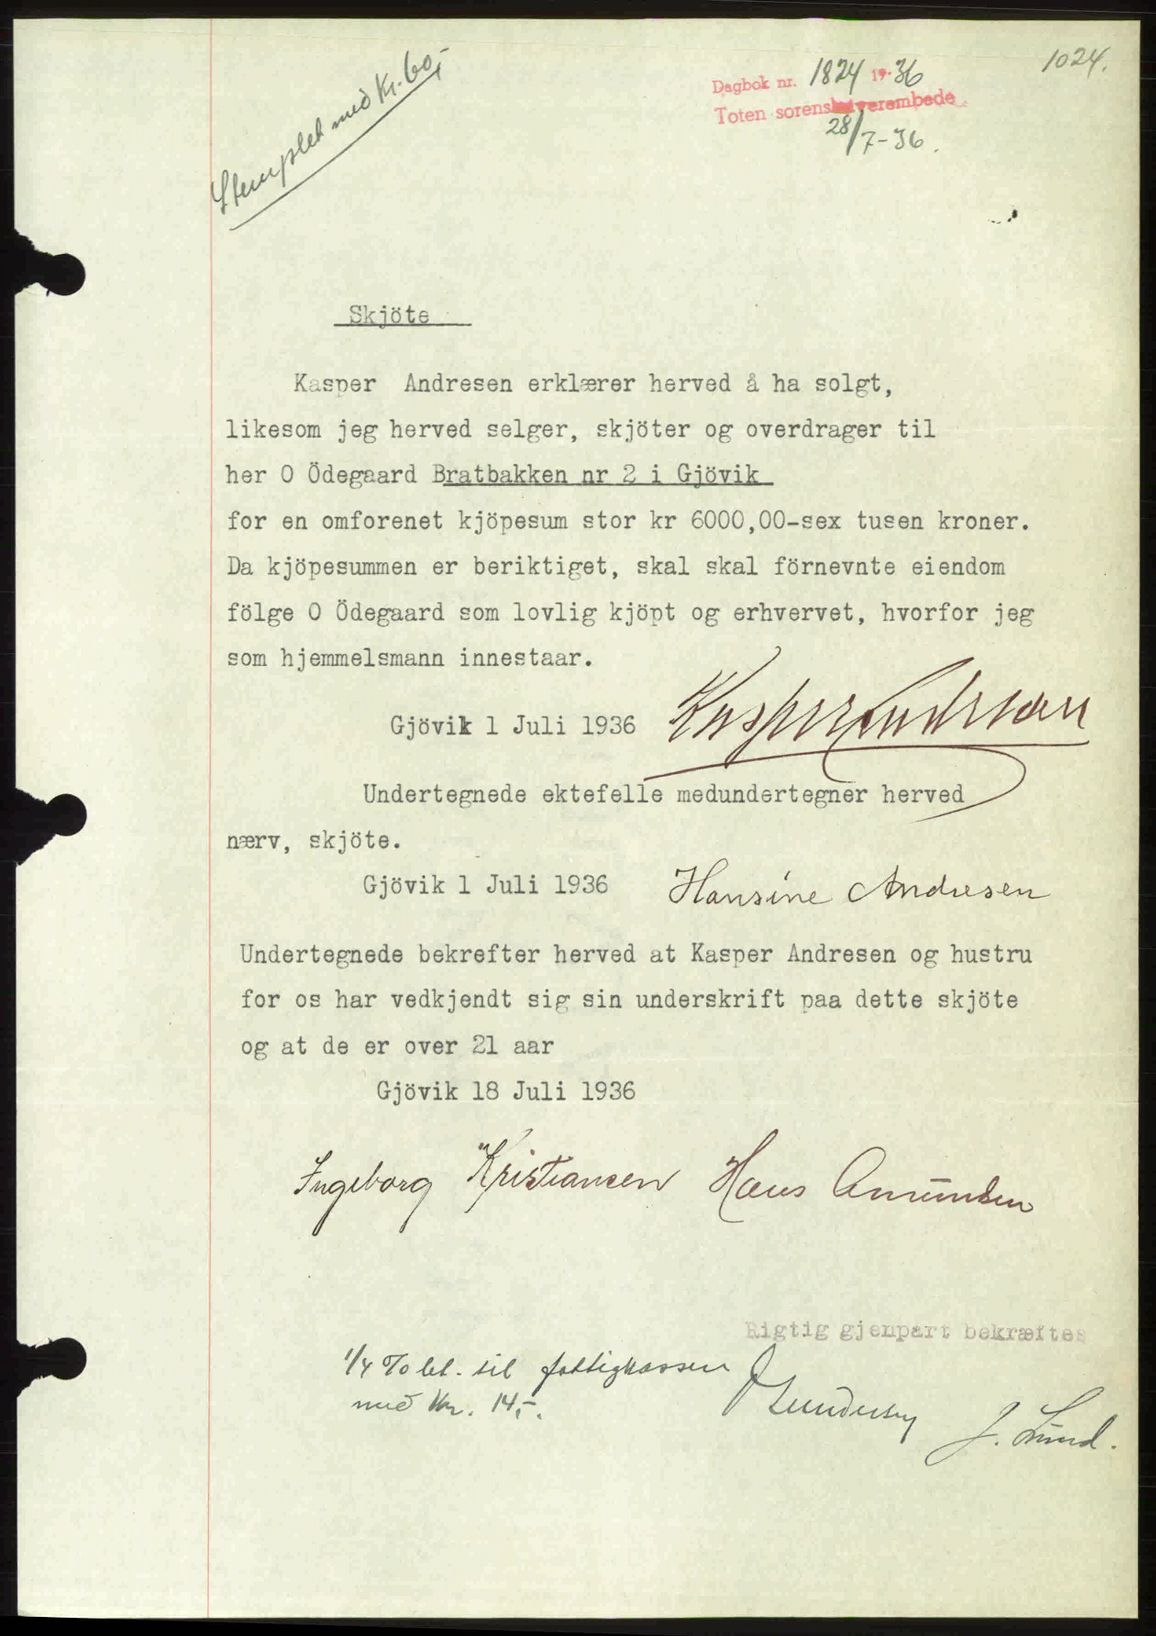 1024.
Stemplet med kr. 60,-
Dagbok nr. 1824 19.36
Toten sorenskriverembede
28/7-36.
Skjöte
Kasper Andresen erklærer herved å ha solgt,
likesom jeg herved selger, skjöter og overdrager til
her O Ödegaard Bratbakken nr 2 i Gjövik
for en omforenet kjöpesum stor kr 6000,00-sex tusen kroner.
Da kjöpesummen er beriktiget, skal skal förnevnte eiendom
fölge O Ödegaard som lovlig kjöpt og erhvervet, hvorfor jeg
som hjemmelsmann innestaar.
Gjövik 1 Juli 1936 Kasper Andresen
Undertegnede ektefelle medundertegner herved
nærv, skjöte.
Gjövik 1 Juli 1936 Hansine Andresen
Undertegnede bekrefter herved at Kasper Andresen og hustru
for os har vedkjendt sig sin underskrift paa dette skjöte
og at de er over 21 aar
Gjövik 18 Juli 1936
Ingeborg Kristiansen Hans Amundsen
Rigtig gjenpart bekræftes
1/4 % bet. til fattigkassen
med kr. 14,-.
J. Lund.